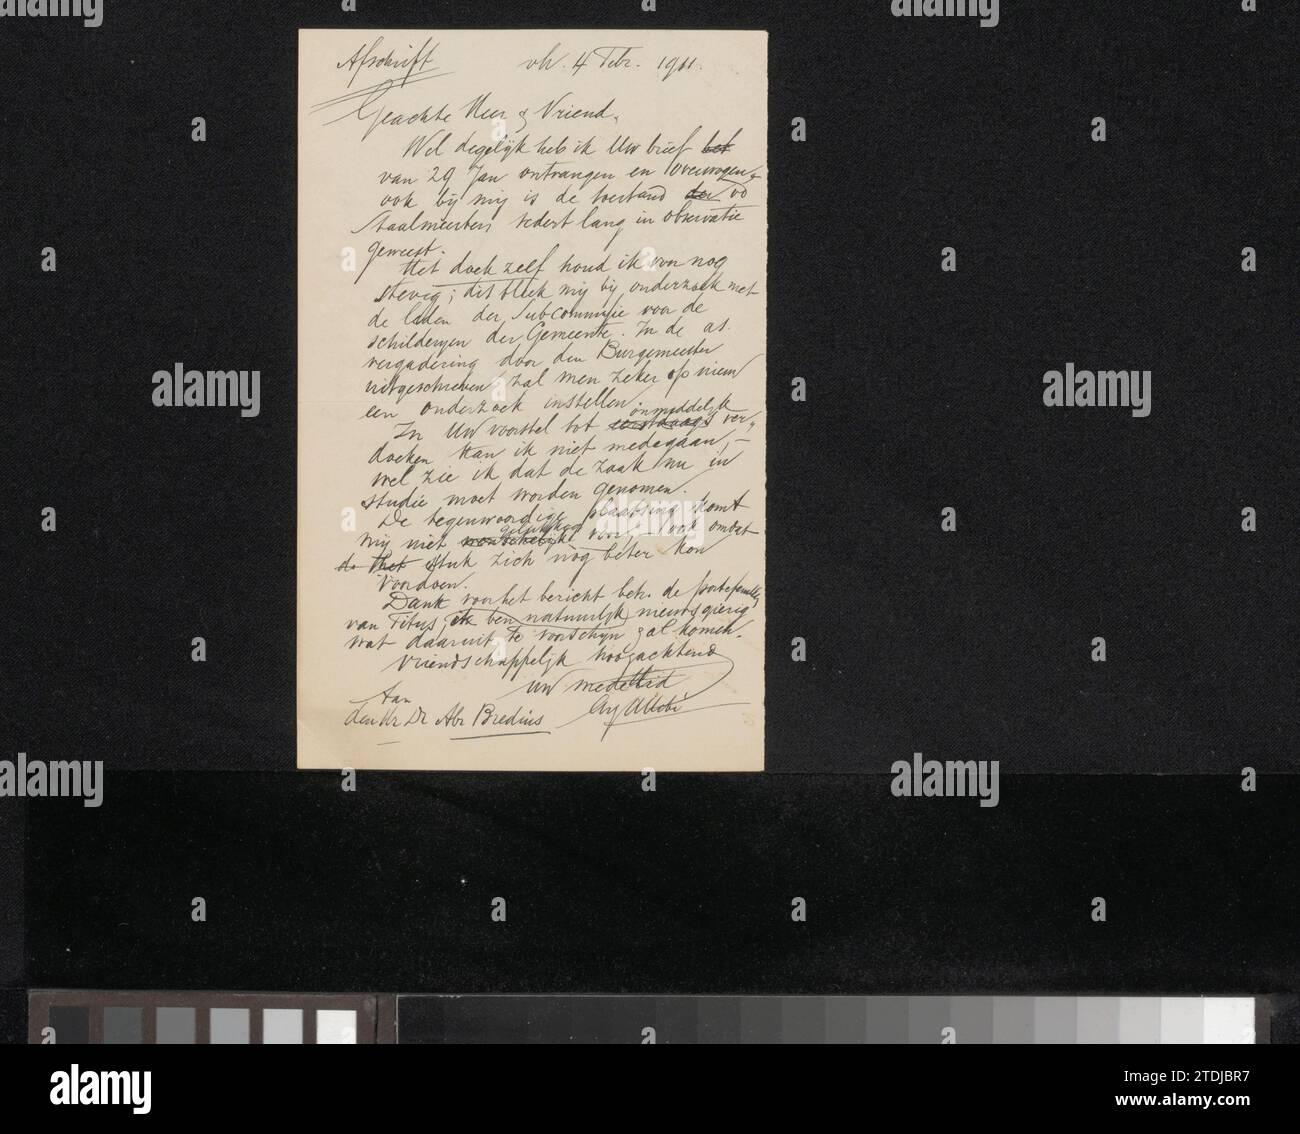 Afschrift
4 Febr. 1911.
Geachte Heer & Vriend,
Wel degelijk heb ik Uw brief het
van 29 Jan ontvangen en overwogen,
ook bij mij is de toestand der
Staalmeesters sedert lang in observatie
geweest.
Het doek zelf houd ik voor nog
stevig; dit bleek mij bij onderzoek met
de leden der Subcommissie voor de
schilderyen der Gemeente. In de as.
vergadering door den Burgemeester
uitgeschreven zal men zeker op nieuw
een onderzoek instellen.
onmiddelijk
In Uw voorstel tot eerstdaags ver-
doeken kan ik niet medegaan, –
wel zie ik dat de zaak nu in
studie moet worden genomen.
De tegenwoordige plaatsing komt
mij niet voor – ook omdat
het stuk zich nog beter kon
voordoen.
Dank voor het bericht betr. de portefeuilles
van Titus, ik ben natuurlijk nieuwsgierig
wat daaruit te voorschijn zal komen.
Vriendschappelijk hoogachtend
uw medelid
Aug Allebé
Aan
den Hr Dr Abr Bredius
alamy
Image ID: 2TDJBR7
www.alamy.com